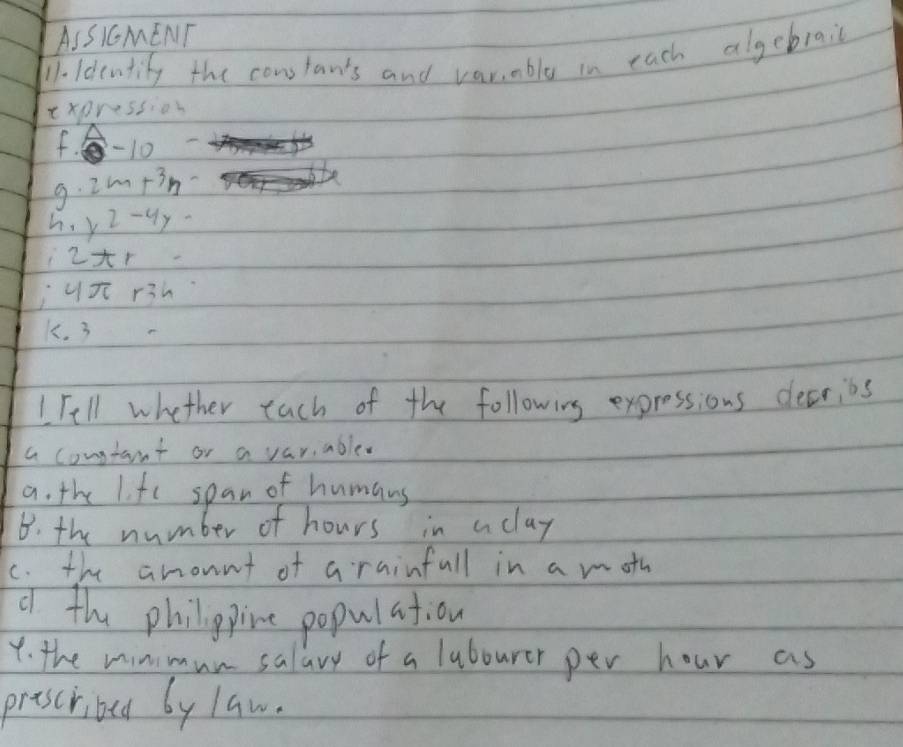 ASSIGMENT
11. Identify the constants and variable in each algebraic
expression
f. -10 -
g. 2m + 3n -
h. y2 - 4y -
i 2πr -
j 4π r3h
k. 3 -
1. Tell whether each of the following expressions describs
a constant or a variable.
a. the life span of humans
B. the number of hours in a day
c. the amount of a rainfall in a moth
d. the philippine population
e. the minimum salary of a labourer per hour as
prescribed by law.